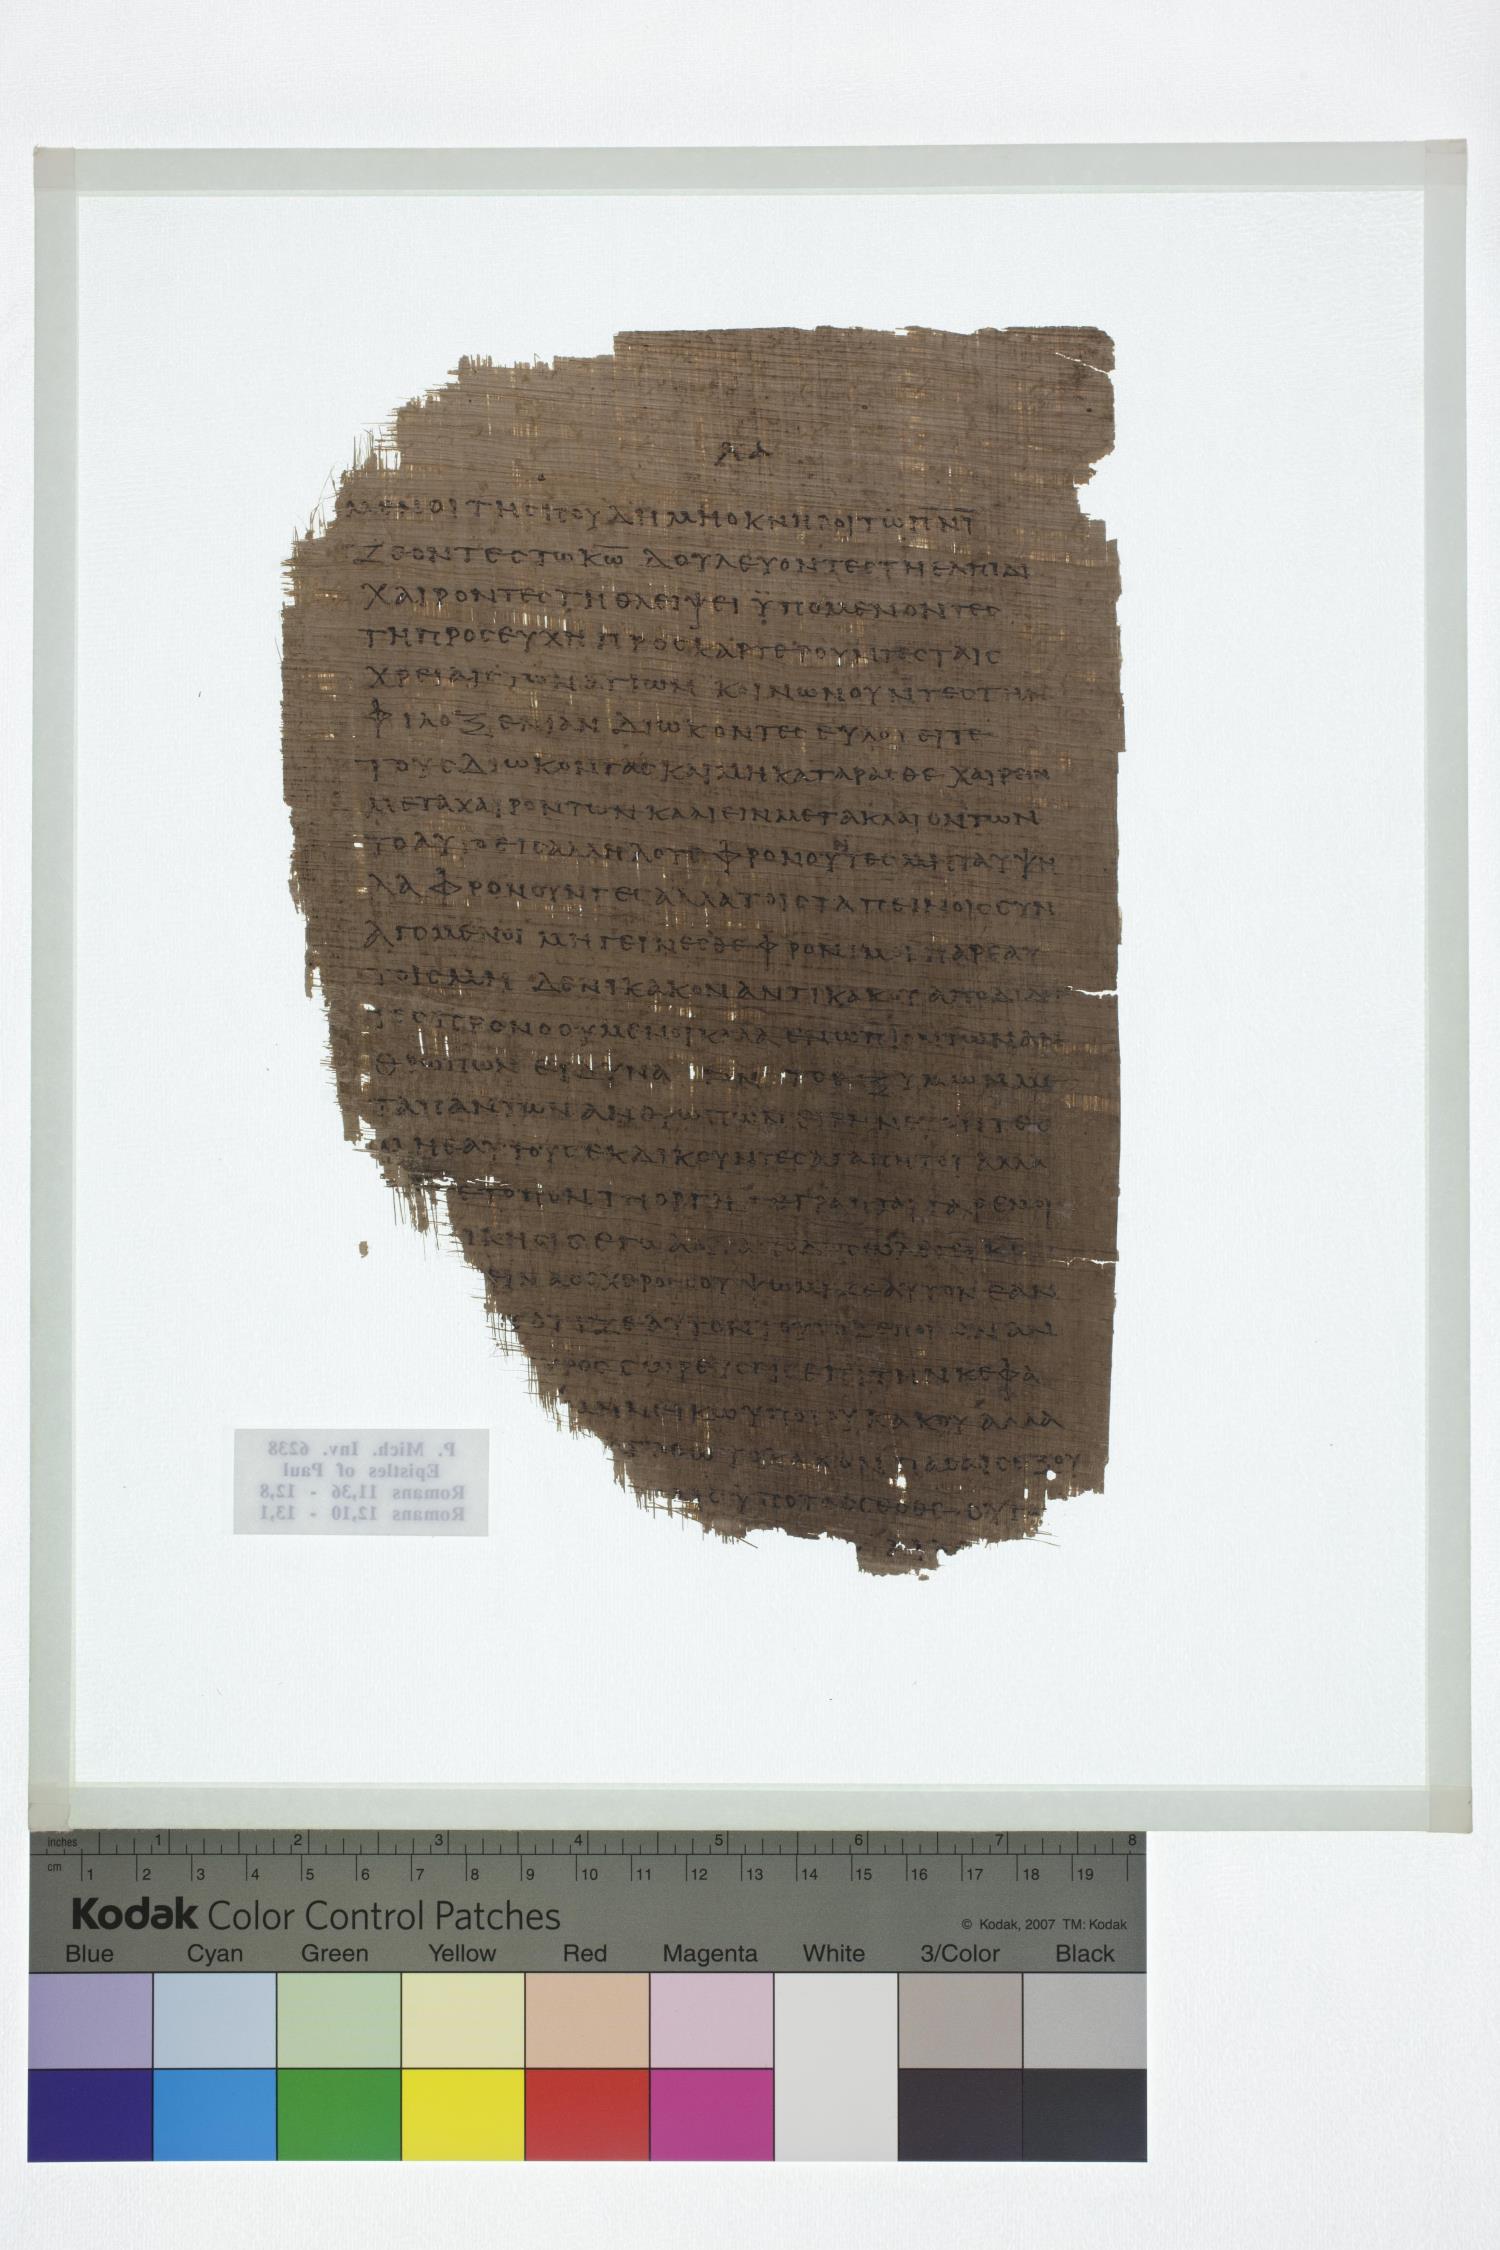 λα
μενοι τη σπουδη μη οκνηροι τω πνι
ζεοντες τω κω δουλευοντες τη ελπιδι
χαιροντες τη θλειψει ϋπομενοντες
τη προσευχη προσκαρτερουντες ταις
χρειαις των αγιων κοινωνουντες την
φιλοξενιαν διωκοντες ευλογειτε
τους διωκοντας και μη καταρασθε χαιρειν
μετα χαιροντων κλαιειν μετα κλαιοντων
το αυτο εις αλληλους φρονουντες μη τα υψη
λα φρονουντες αλλα τοις ταπεινοις συν
αγομενοι μη γεινεσθε φρονιμοι παρ εαυ
τοις μηδενι κακον αντι κακου αποδιδον
τες προνοουμενοι καλα ενωπιον των αν
θρωπων ει δυνατον το εξ υμων με
τα παντων ανθρωπων ειρηνευοντες
μη εαυτους εκδικουντες αγαπητοι αλλα
τε τοπον τη οργη γεγραπται γαρ εμοι
ικησις εγω ανταποδωσω λεγει κς
ψωμιζε αυτον εαν
ποτιζε αυτον τουτο γαρ ποιων αν
ρος σωρευσεις επι την κεφα
μη νικω υπο του κακου αλλα
το κακον πασαις εξου
αις υποτασσεσθε ου γαρ
P. Mich. Inv. 6238
Epistles of Paul
Romans 11,36 - 12,8
Romans 12,10 - 13,1
inches 1 2 3 4 5 6 7 8
cm 1 2 3 4 5 6 7 8 9 10 11 12 13 14 15 16 17 18 19
Kodak Color Control Patches
© Kodak, 2007 TM: Kodak
Blue Cyan Green Yellow Red Magenta White 3/Color Black